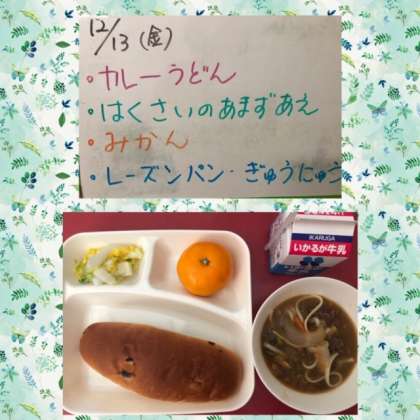 12/13(金)
・カレーうどん
・はくさいのあまずあえ
・みかん
・レーズンパン・ぎゅうにゅう
IKARUGA
いかるが牛乳